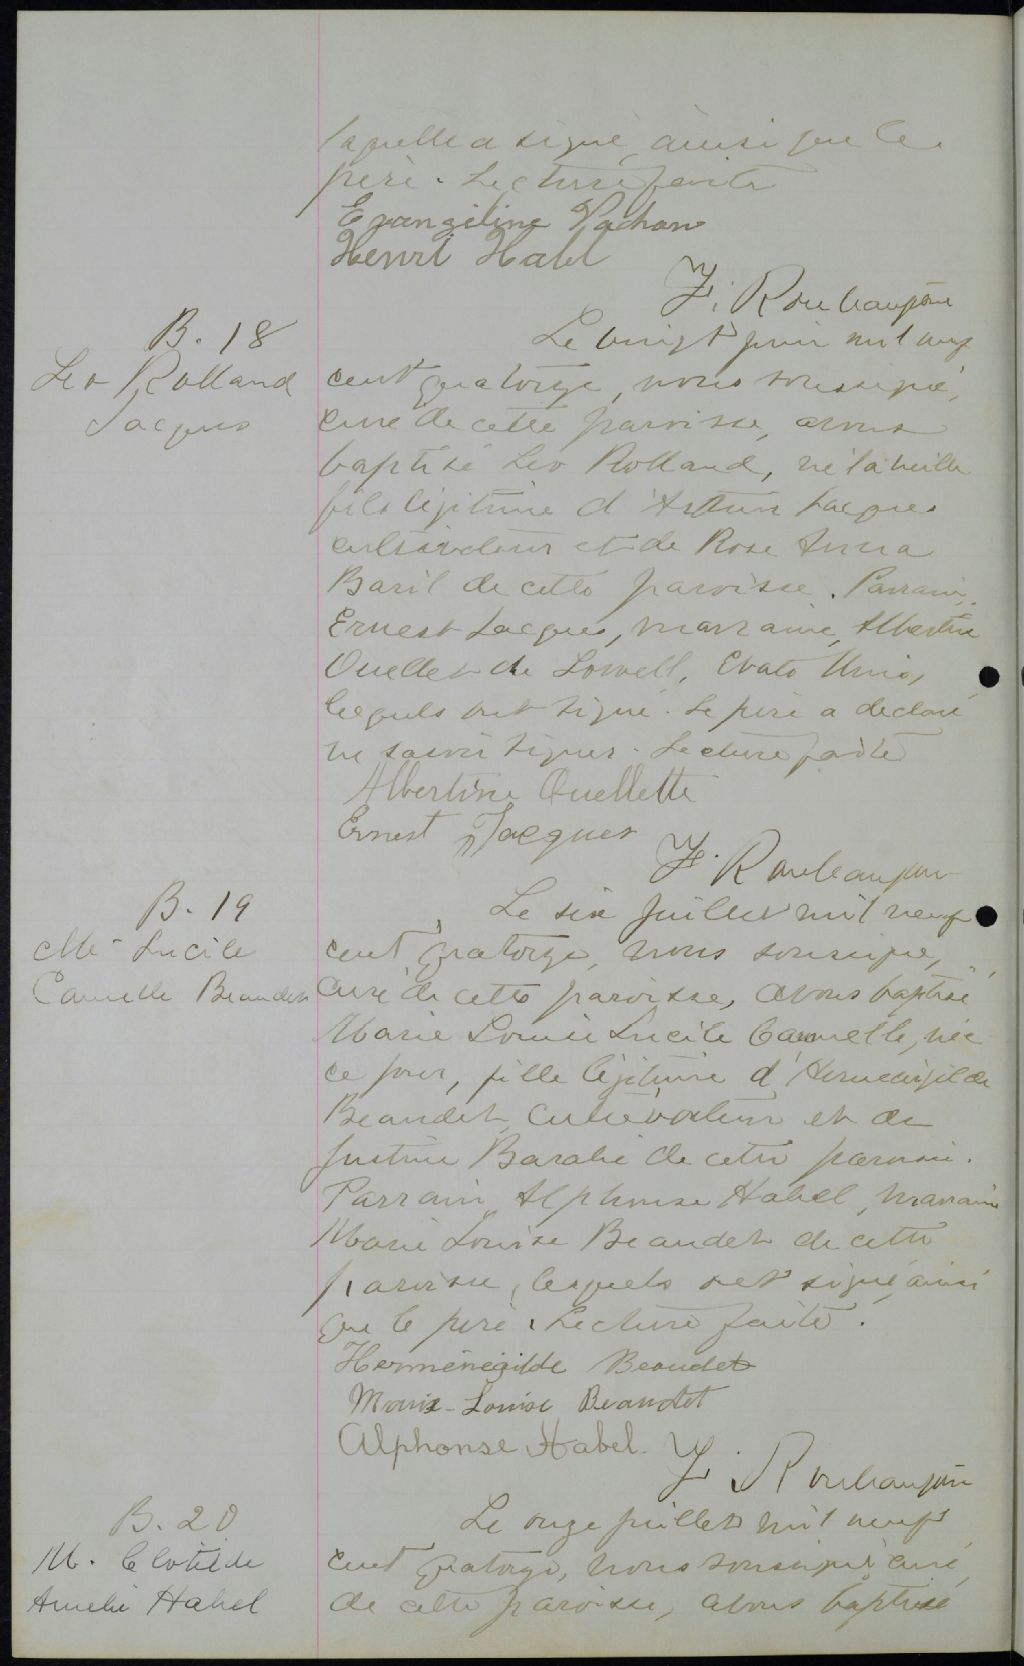 laquelle a signé, ainsi que le
père. Lecture faite
Evangeline Vachon
Henri Habel
B. 18
Leo Rolland
Jacques
Le vingt juin mil neuf
cent quatorze, nous soussigné,
curé de cette paroisse, avons
baptisé Leo Rolland, né la veille
fils légitime d'Arthur Jacques
cultivateur et de Rose Anna
Baril de cette paroisse. Parrain,
Ernest Jacques, marraine, Albertine
Ouellet de Lowell, Etats Unis,
lesquels ont signé. Le père a declaré
ne savoir signer. Lecture faite
Albertine Ouellette
Ernest Jacques
B. 19
Mie Lucile
Camelle Beaudet
Le six juillet mil neuf
cent quatorze, nous soussigné,
curé de cette paroisse, avons baptisé
Marie Louise Lucile Camelle, née
ce jour, fille légitime d'Hermenégilde
Beaudet, cultivateur et de
Justine Barabé de cette paroisse.
Parrain Alphonse Habel, marraine
Marie Louise Beaudet de cette
paroisse, lesquels ont signé, ainsi
que le père. Lecture faite.
Herménégilde Beaudet
Marie-Louise Beaudet
Alphonse Habel.
B. 20
M. Clotilde
Amelie Habel
Le onze juillet mil neuf
cent quatorze, nous soussigné curé,
de cette paroisse, avons baptisé